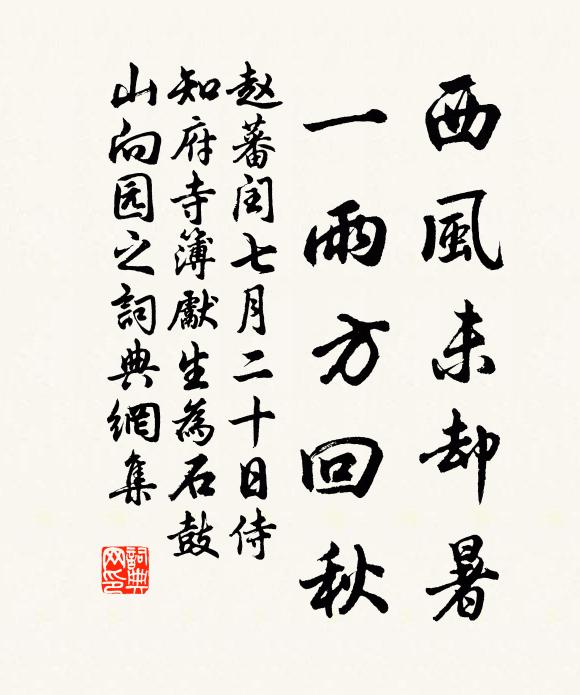 西風未却暑
一雨方回秋
赵蕃閏七月二十日侍
知府寺簿獻生為石鼓
山向园之詞典網集
詞典网印